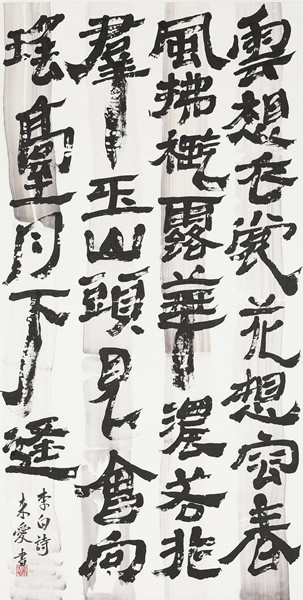 雲想衣裳花想容春
風拂檻露華濃若非
羣玉山頭見會向
瑤臺月下逢
李白詩
愛書